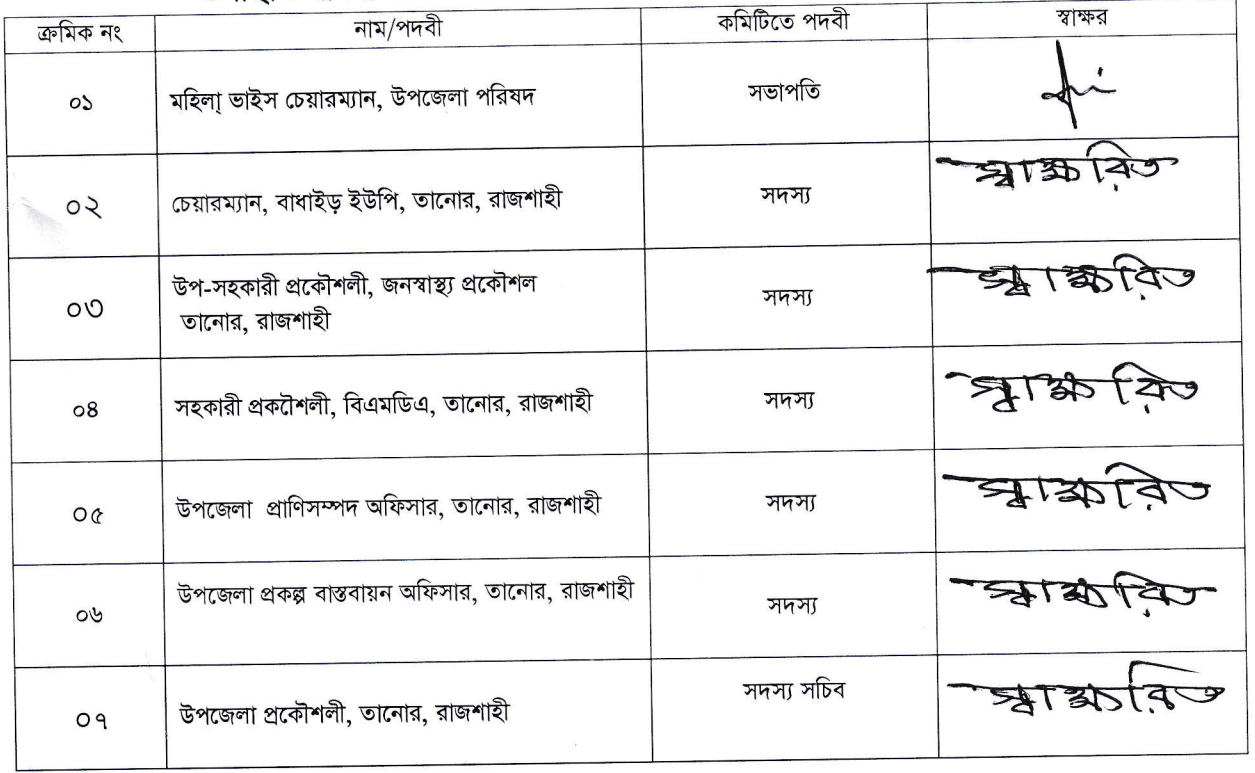 ক্রমিক নং নাম/পদবী কমিটিতে পদবী স্বাক্ষর
০১ মহিলা ভাইস চেয়ারম্যান, উপজেলা পরিষদ সভাপতি
০২ চেয়ারম্যান, বাধাইড় ইউপি, তানোর, রাজশাহী সদস্য স্বাক্ষরিত
০৩ উপ-সহকারী প্রকৌশলী, জনস্বাস্থ্য প্রকৌশল সদস্য স্বাক্ষরিত
তানোর, রাজশাহী
০৪ সহকারী প্রকটৌশলী, বিএমডিএ, তানোর, রাজশাহী সদস্য স্বাক্ষরিত
০৫ উপজেলা প্রাণিসম্পদ অফিসার, তানোর, রাজশাহী সদস্য স্বাক্ষরিত
০৬ উপজেলা প্রকল্প বাস্তবায়ন অফিসার, তানোর, রাজশাহী সদস্য স্বাক্ষরিত
০৭ উপজেলা প্রকৌশলী, তানোর, রাজশাহী সদস্য সচিব স্বাক্ষরিত